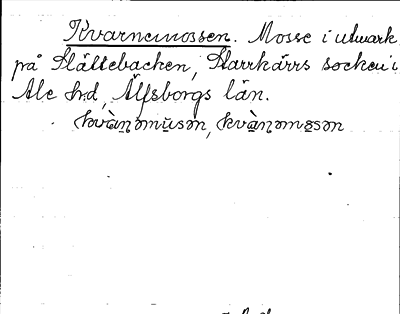 Kvarnemossen. Mosse i utmark
på Slättebacken, Starrkärrs socken i
Ale hrd, Älfsborgs län.
kvàṉəmūsən, kvàṉəmo̱sən